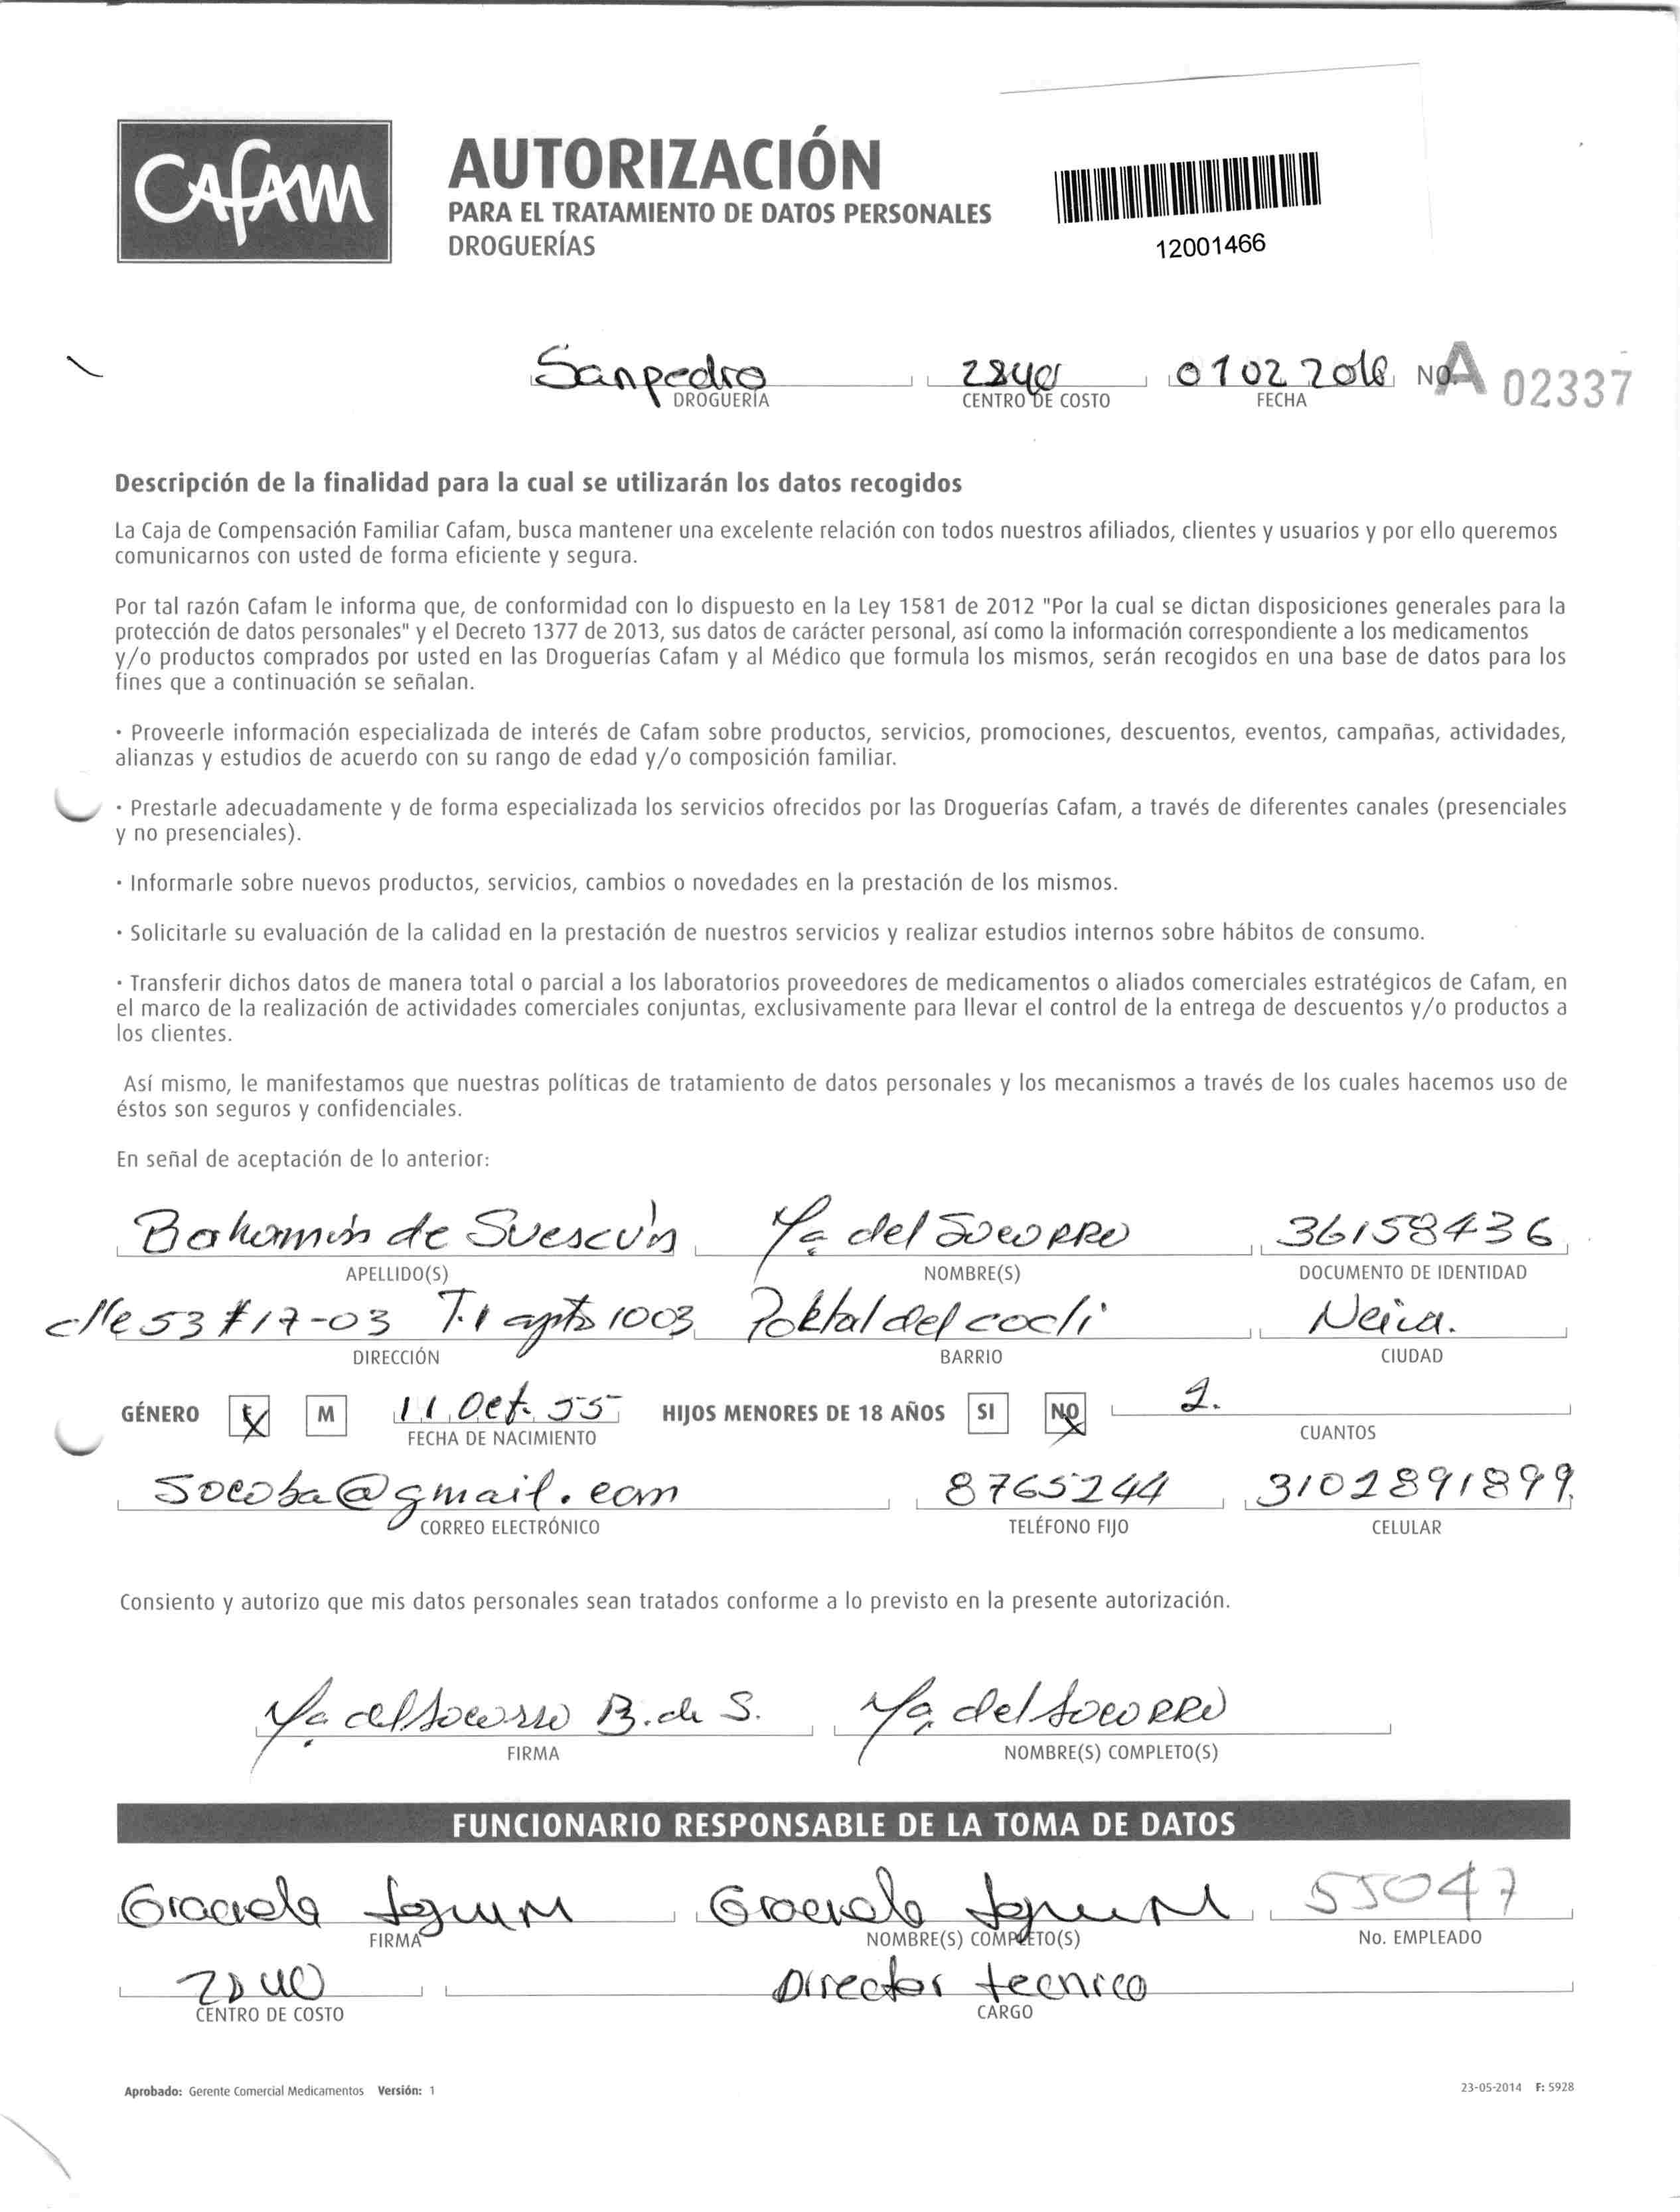 CAFAM
AUTORIZACIÓN
PARA EL TRATAMIENTO DE DATOS PERSONALES
DROGUERÍAS
12001466
Sanpedro 01 02 2016 NO. A 02337
DROGUERÍA CENTRO DE COSTO FECHA
Descripción de la finalidad para la cual se utilizarán los datos recogidos
La Caja de Compensación Familiar Cafam, busca mantener una excelente relación con todos nuestros afiliados, clientes y usuarios y por ello queremos
comunicarnos con usted de forma eficiente y segura.
Por tal razón Cafam le informa que, de conformidad con lo dispuesto en la Ley 1581 de 2012 "Por la cual se dictan disposiciones generales para la
protección de datos personales" y el Decreto 1377 de 2013, sus datos de carácter personal, así como la información correspondiente a los medicamentos
y/o productos comprados por usted en las Droguerías Cafam y al Médico que formula los mismos, serán recogidos en una base de datos para los
fines que a continuación se señalan.
· Proveerle información especializada de interés de Cafam sobre productos, servicios, promociones, descuentos, eventos, campañas, actividades,
alianzas y estudios de acuerdo con su rango de edad y/o composición familiar.
· Prestarle adecuadamente y de forma especializada los servicios ofrecidos por las Droguerías Cafam, a través de diferentes canales (presenciales
y no presenciales).
· Informarle sobre nuevos productos, servicios, cambios o novedades en la prestación de los mismos.
· Solicitarle su evaluación de la calidad en la prestación de nuestros servicios y realizar estudios internos sobre hábitos de consumo.
· Transferir dichos datos de manera total o parcial a los laboratorios proveedores de medicamentos o aliados comerciales estratégicos de Cafam, en
el marco de la realización de actividades comerciales conjuntas, exclusivamente para llevar el control de la entrega de descuentos y/o productos a
los clientes.
Así mismo, le manifestamos que nuestras políticas de tratamiento de datos personales y los mecanismos a través de los cuales hacemos uso de
éstos son seguros y confidenciales.
En señal de aceptación de lo anterior:
Bahamón de Suescún Ma del Socorro 36158436
APELLIDO(S) NOMBRE(S) DOCUMENTO DE IDENTIDAD
clle 53 #17-03 T.1 apto 1003 Poktal del cocli Neiva.
DIRECCIÓN BARRIO CIUDAD
GÉNERO F M 11 Oct. 55 HIJOS MENORES DE 18 AÑOS SI NO 2.
FECHA DE NACIMIENTO CUANTOS
socoba@gmail.com 8765244 3102891899
CORREO ELECTRÓNICO TELÉFONO FIJO CELULAR
Consiento y autorizo que mis datos personales sean tratados conforme a lo previsto en la presente autorización.
Ma del Socorro B. de S. Ma del Socorro
FIRMA NOMBRE(S) COMPLETO(S)
FUNCIONARIO RESPONSABLE DE LA TOMA DE DATOS
Graciela Graciela 55047
FIRMA NOMBRE(S) COMPLETO(S) No. EMPLEADO
Director tecnico
CENTRO DE COSTO CARGO
Aprobado: Gerente Comercial Medicamentos Versión: 1 23-05-2014 F: 5928